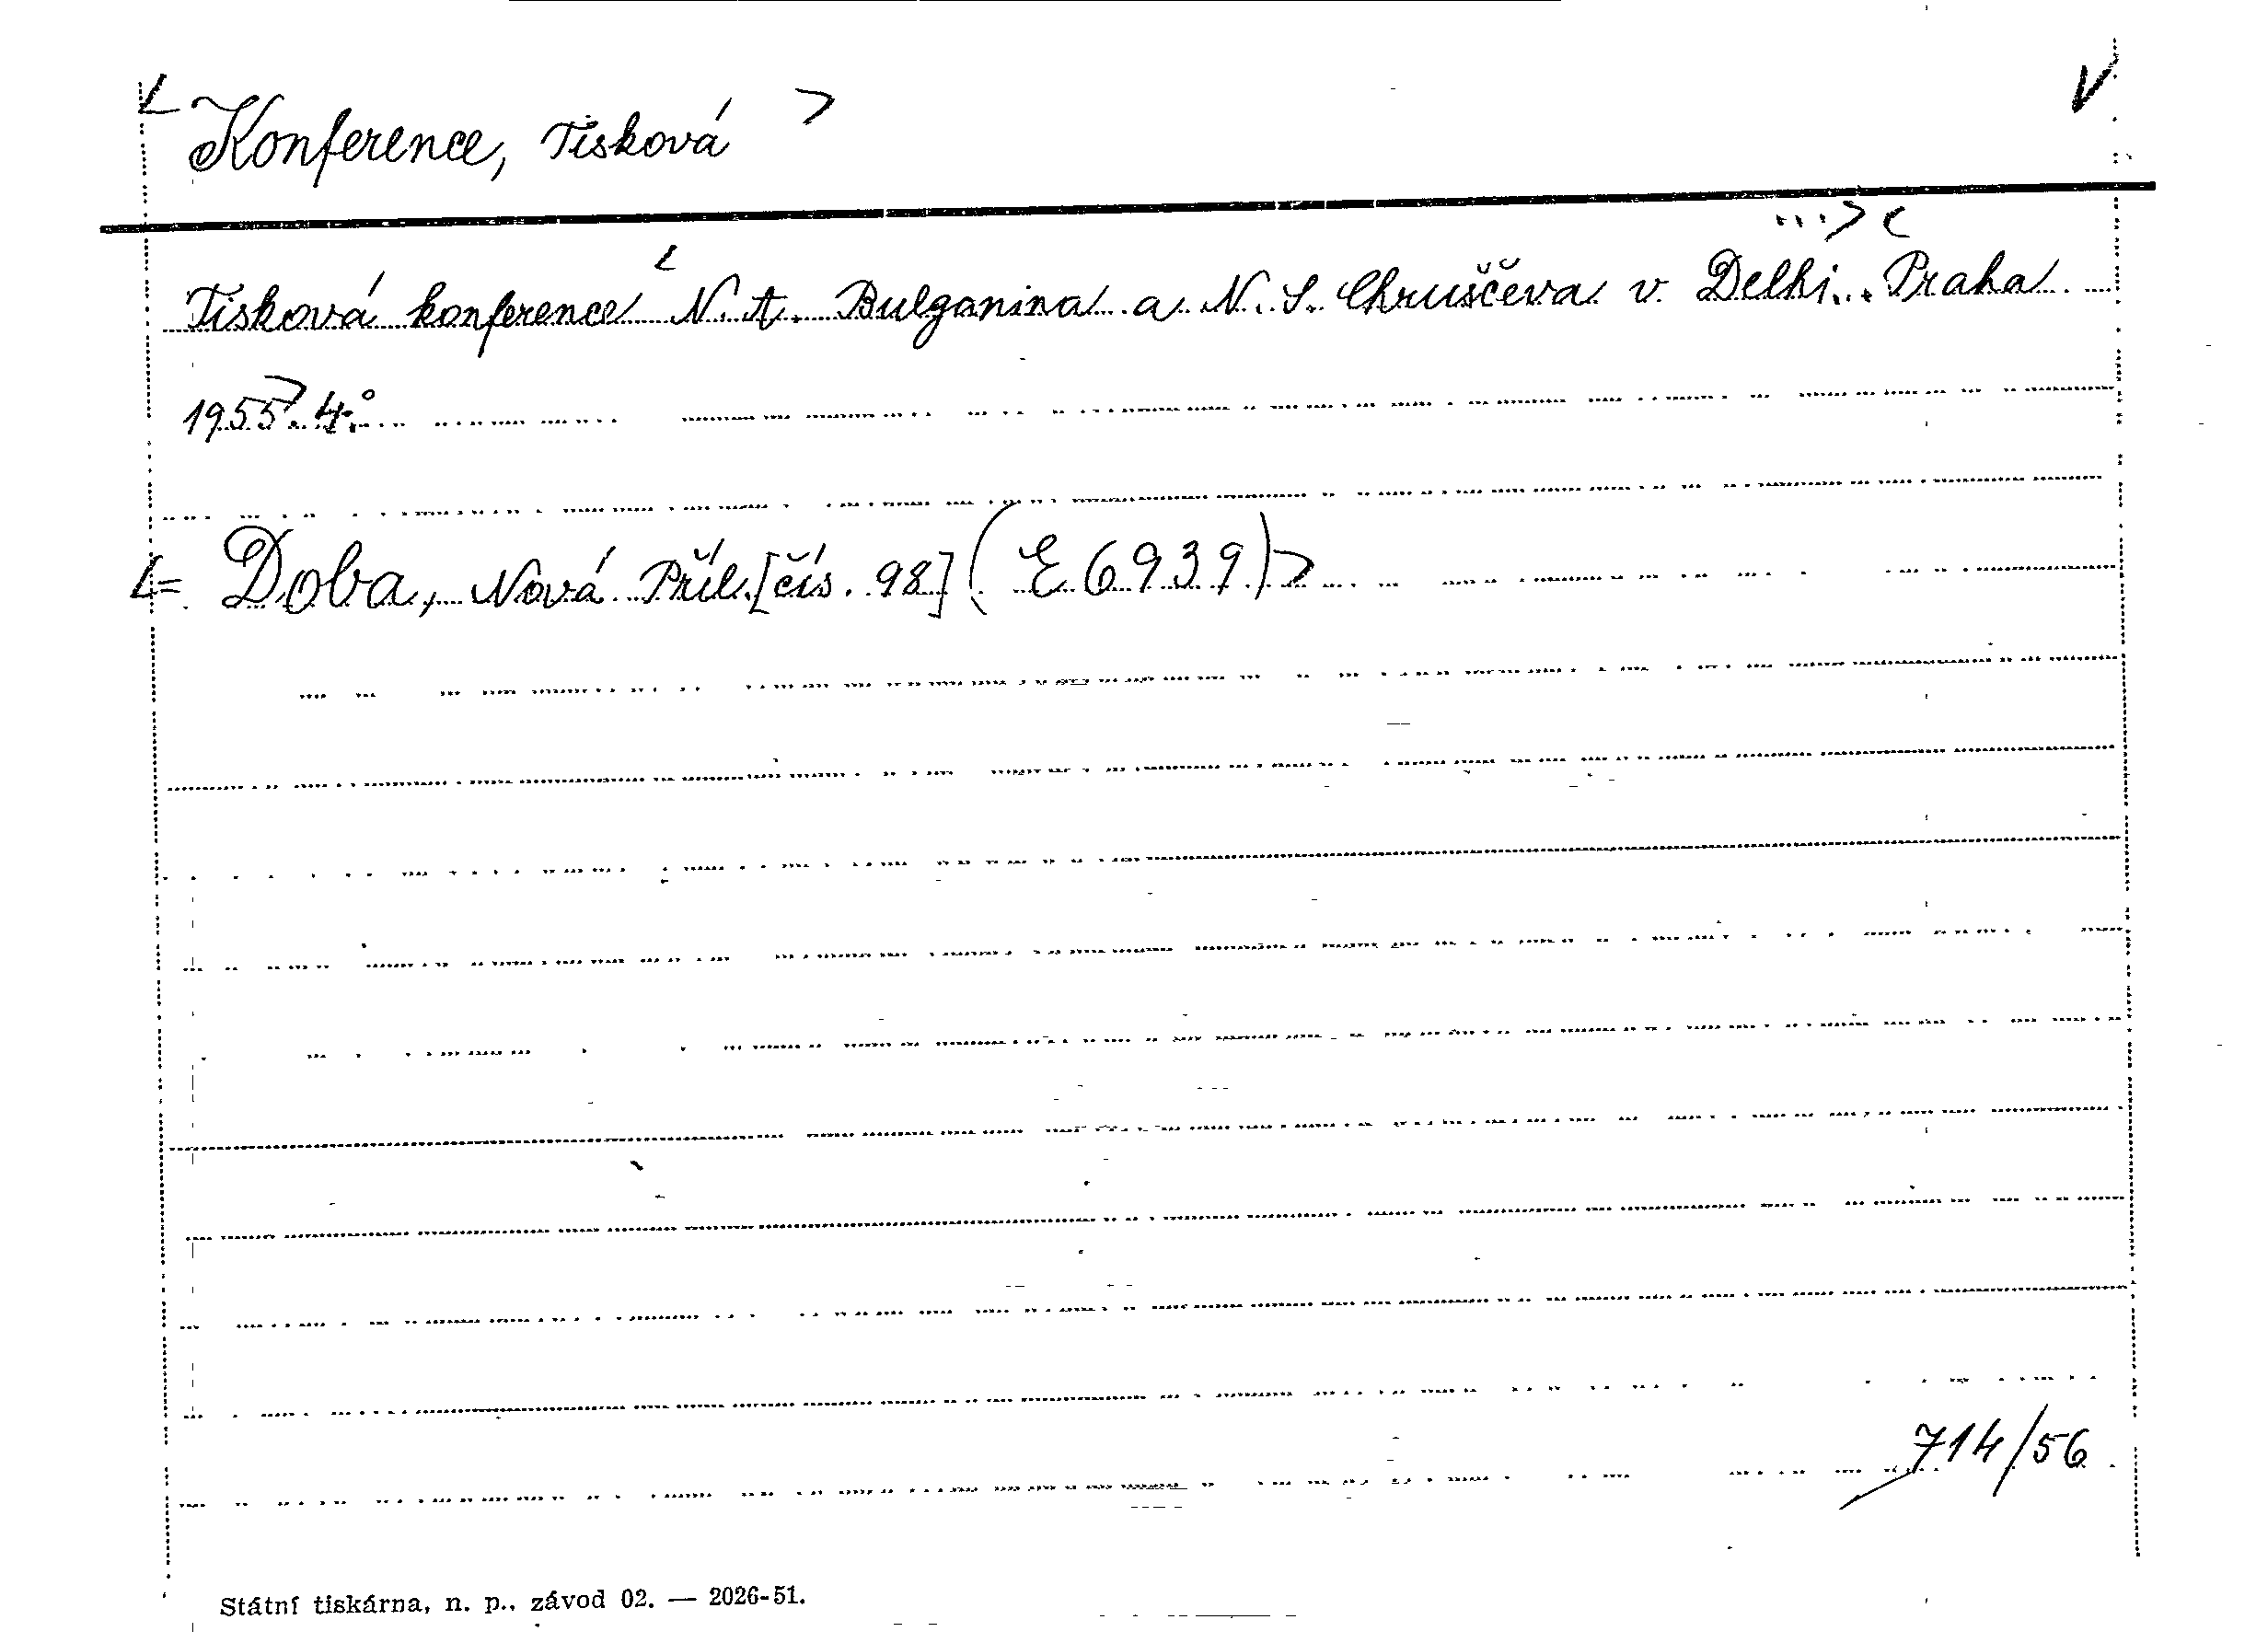 Konference, Tisková
Tisková konference N. A. Bulganina a N. S. Chruščeva v Delhi... Praha
1955. 4°.
= Doba, Nová. Příl. [čís. 98] (E 6939)
714/56
Státní tiskárna, n. p., závod 02. — 2026-51.